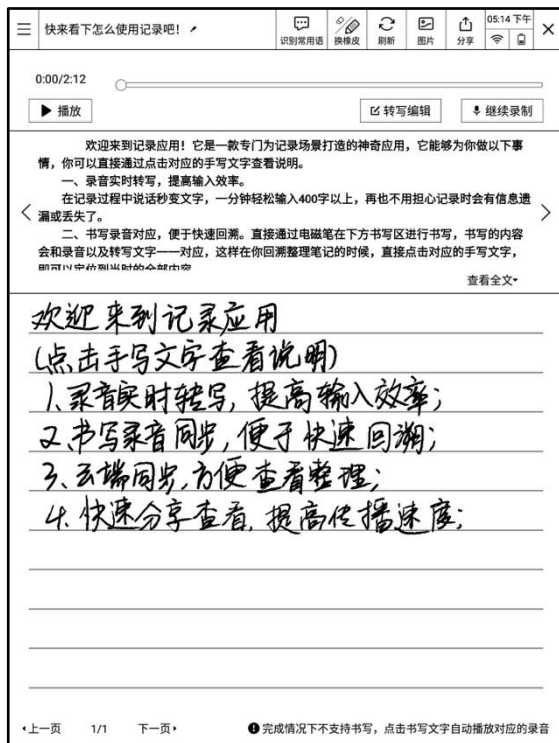 快来看下怎么使用记录吧！
识别常用语
换橡皮
刷新
图片
分享
05:14 下午
0:00/2:12
播放
转写编辑
继续录制
欢迎来到记录应用！它是一款专门为记录场景打造的神奇应用，它能够为你做以下事
情，你可以直接通过点击对应的手写文字查看说明。
一、录音实时转写，提高输入效率。
在记录过程中说话秒变文字，一分钟轻松输入400字以上，再也不用担心记录时会有信息遗
漏或丢失了。
二、书写录音对应，便于快速回溯。直接通过电磁笔在下方书写区进行书写，书写的内容
会和录音以及转写文字一一对应，这样在你回溯整理笔记的时候，直接点击对应的手写文字，
即可以定位到当时的全部内容
查看全文
欢迎来到记录应用
(点击手写文字查看说明)
1、录音实时转写，提高输入效率；
2、书写录音同步，便于快速回溯；
3、云端同步，方便查看整理；
4、快速分享查看，提高传播速度；
上一页 1/1 下一页
完成情况下不支持书写，点击书写文字自动播放对应的录音